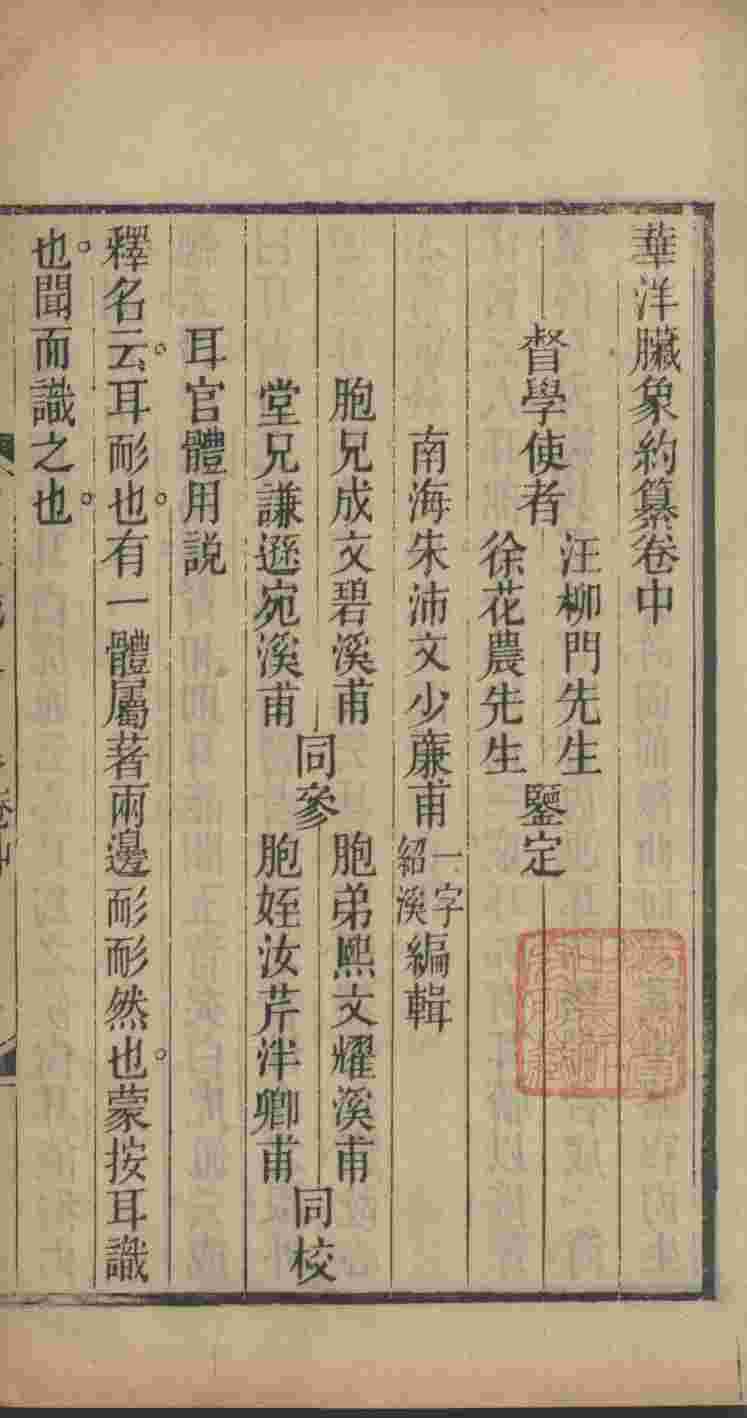 華洋臟象約纂卷中
督學使者
汪柳門先生
徐花農先生
鑒定
南海朱沛文少廉甫一字紹溪編輯
胞兄成文碧溪甫
堂兄謙遜宛溪甫
同參
胞弟熙文耀溪甫
胞姪汝芹泮卿甫
同校
耳官體用説
釋名云。耳耏也。有一體屬著兩邊耏耏然也。蒙按耳識
也。聞而識之也。